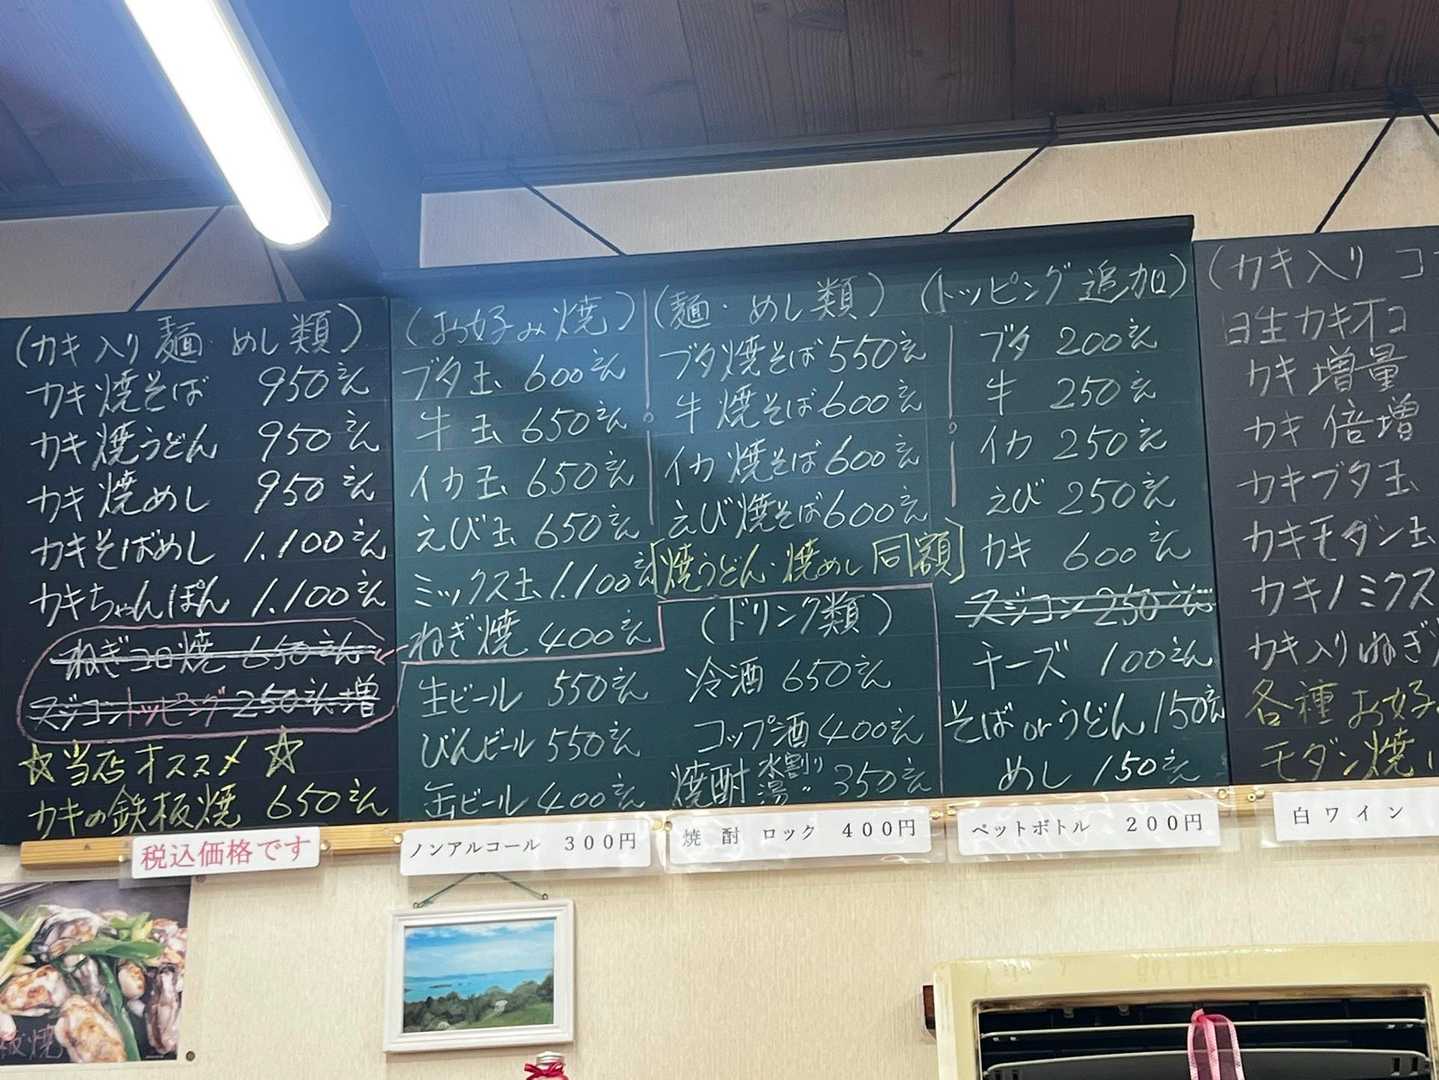 (カキ入り麺・めし類)
カキ焼そば 950円
カキ焼うどん 950円
カキ焼めし 950円
カキそばめし 1.100円
カキちゃんぽん 1.100円
ねぎコロ焼 650円
スジコントッピング 250円増
☆当店オススメ☆
カキの鉄板焼 650円
税込価格です
(お好み焼)
ブタ玉 600円
牛玉 650円
イカ玉 650円
えび玉 650円
ミックス玉 1.100円
ねぎ焼 400円
生ビール 550円
びんビール 550円
缶ビール 400円
ノンアルコール 300円
(麺・めし類)
ブタ焼そば 550円
牛焼そば 600円
イカ焼そば 600円
えび焼そば 600円
[焼うどん・焼めし同額]
(ドリンク類)
冷酒 650円
コップ酒 400円
焼酎 水割り 湯〃 350円
焼酎 ロック 400円
(トッピング追加)
ブタ 200円
牛 250円
イカ 250円
えび 250円
カキ 600円
スジコン 250円
チーズ 100円
そばorうどん 150円
めし 150円
ペットボトル 200円
(カキ入り コ
日生カキオコ
カキ増量
カキ倍増
カキブタ玉
カキモダン玉
カキミックス
カキ入りねぎ
各種お好み
モダン焼
白ワイン
板焼